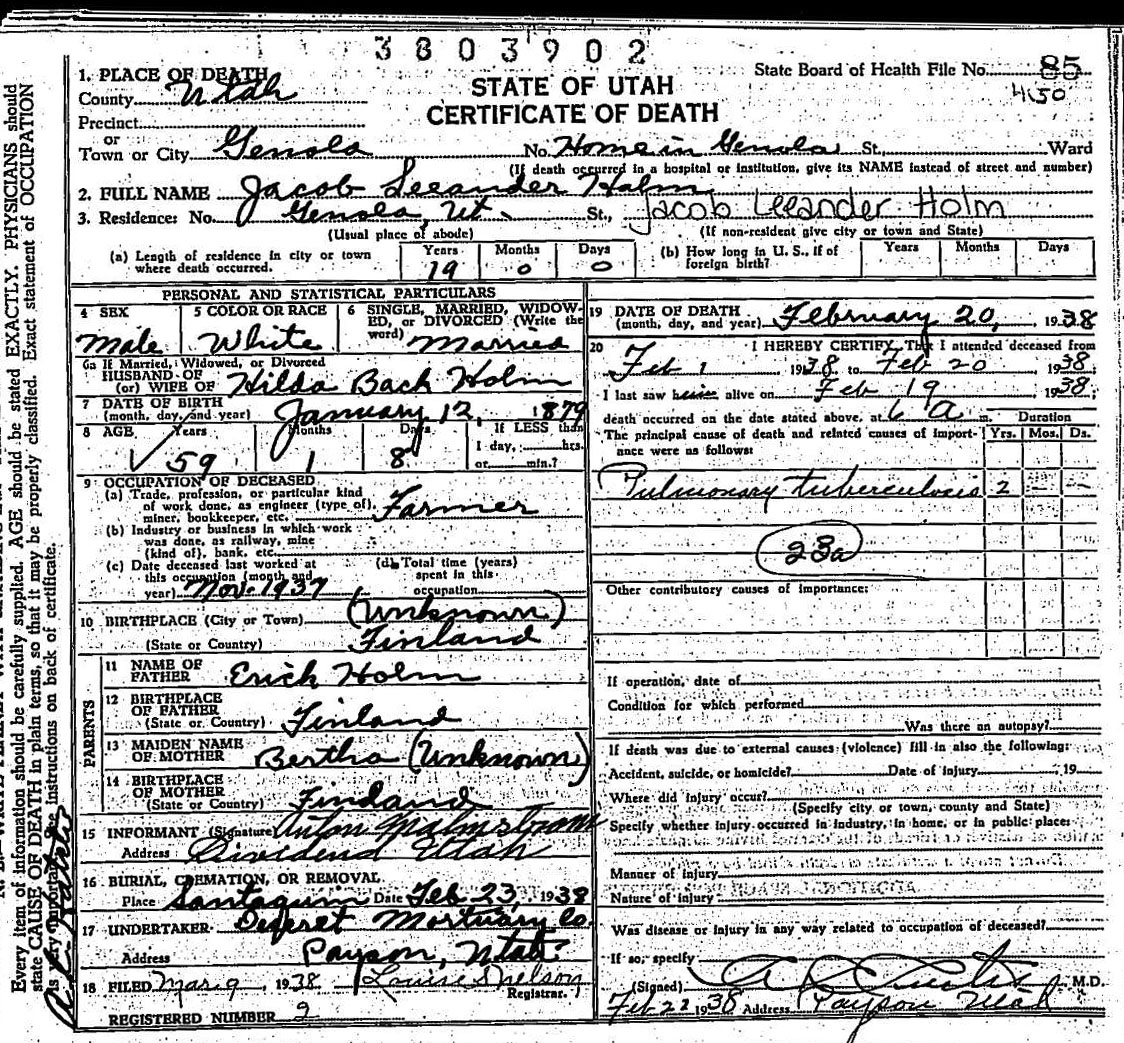 3803902
State Board of Health File No. 85
450
STATE OF UTAH
CERTIFICATE OF DEATH
1. PLACE OF DEATH
County Utah
Precinct
or
Town or City Genola No. Home in Genola St., Ward
(If death occurred in a hospital or institution, give its NAME instead of street and number)
2. FULL NAME Jacob Leeander Holm
3. Residence: No. Genola, Ut. St., Jacob Leeander Holm
(Usual place of abode) (If non-resident give city or town and State)
(a) Length of residence in city or town where death occurred. Years 19 Months 0 Days 0
(b) How long in U. S., if of foreign birth? Years Months Days
PERSONAL AND STATISTICAL PARTICULARS
4 SEX Male
5 COLOR OR RACE White
6 SINGLE, MARRIED, WIDOWED, or DIVORCED (Write the word) Married
6a If Married, Widowed, or Divorced
HUSBAND OF
(or) WIFE OF Hilda Back Holm
7 DATE OF BIRTH
(month, day, and year) January 12, 1879
8 AGE Years 59 Months 1 Days 8 If LESS than
1 day, hrs.
or min.?
9 OCCUPATION OF DECEASED
(a) Trade, profession, or particular kind
of work done, as engineer (type of),
miner, bookkeeper, etc. Farmer
(b) Industry or business in which work
was done, as railway, mine
(kind of), bank, etc.
(c) Date deceased last worked at
this occupation (month and
year) Nov. 1937
(d) Total time (years)
spent in this
occupation
10 BIRTHPLACE (City or Town) (Unknown)
(State or Country) Finland
PARENTS
11 NAME OF
FATHER Erick Holm
12 BIRTHPLACE
OF FATHER
(State or Country) Finland
13 MAIDEN NAME
OF MOTHER Bertha (Unknown)
14 BIRTHPLACE
OF MOTHER
(State or Country) Finland
15 INFORMANT (Signature) Anton Malmstrom
Address Dividend Utah
16 BURIAL, CREMATION, OR REMOVAL
Place Santaquin Date Feb 23, 1938
17 UNDERTAKER Deseret Mortuary Co.
Address Payson, Utah
18 FILED Mar. 9, 1938 Louise Snelson
Registrar.
REGISTERED NUMBER 2
19 DATE OF DEATH
(month, day, and year) February 20, 1938
20 I HEREBY CERTIFY, That I attended deceased from
Feb 1 1938 to Feb 20 1938
I last saw him alive on Feb 19 1938;
death occurred on the date stated above, at 6 A m. Duration
The principal cause of death and related causes of importance were as follows: Yrs. Mos. Ds.
Pulmonary tuberculosis 2 — —
23a
Other contributory causes of importance:
If operation, date of
Condition for which performed
Was there an autopsy?
If death was due to external causes (violence) fill in also the following:
Accident, suicide, or homicide? Date of injury , 19
Where did injury occur?
(Specify city or town, county and State)
Specify whether injury occurred in industry, in home, or in public place:
Manner of injury
Nature of injury
Was disease or injury in any way related to occupation of deceased?
If so, specify
(Signed) M.D.
Feb 22 1938 Address Payson Utah
Every item of information should be carefully supplied. AGE should be stated EXACTLY. PHYSICIANS should
state CAUSE OF DEATH in plain terms, so that it may be properly classified. Exact statement of OCCUPATION
is very important. See instructions on back of certificate.